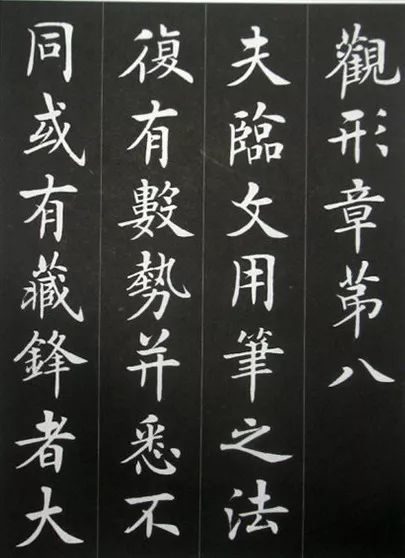 觀形章苐八
夫臨文用筆之法
復有數勢并悉不
同或有藏鋒者大